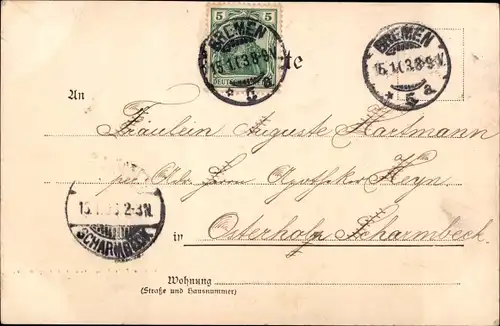 5 5
BREMEN
15.1.03.8-9V.
* 5 a
BREMEN
15.1.03.8-9V.
* 5 a
te
An
Fräulein Auguste Hartmann
per Adr. Herrn Apotheker Heyn
15.1. 2-3N.
SCHARMBECK
in Osterholz Scharmbeck.
Wohnung
(Straße und Hausnummer)